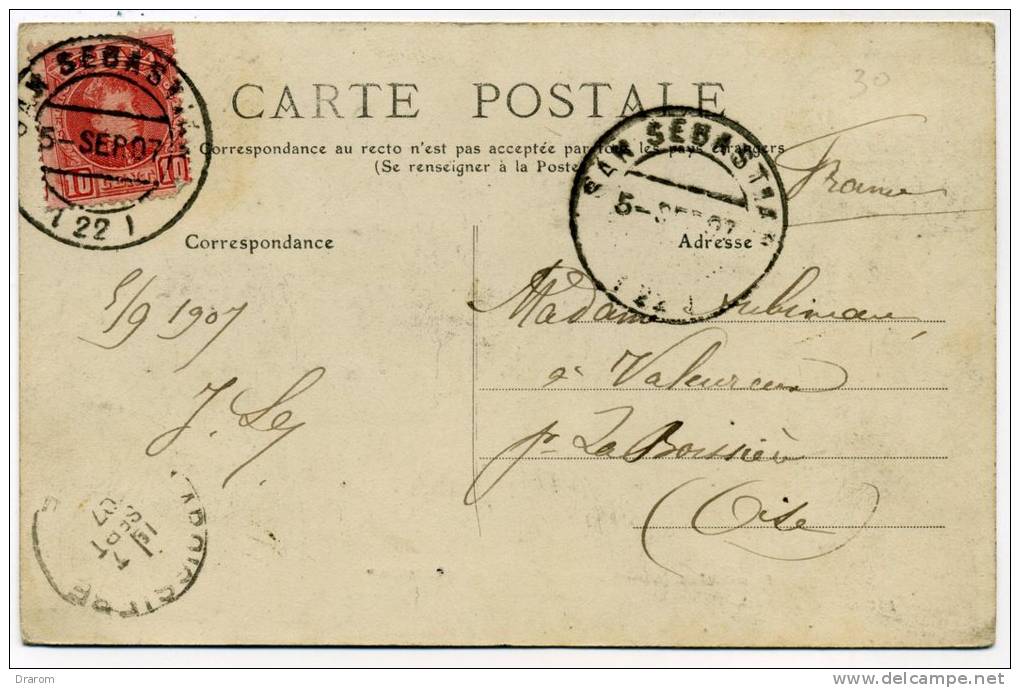 SAN SEBASTIAN
5-SEP.07
(22)
10 10
30
CARTE POSTALE
Correspondance au recto n'est pas acceptée par tous les pays étrangers
(Se renseigner à la Poste)
France
SAN SEBASTIAN
5-SEP.07
(22)
Correspondance
Adresse
5/9 1907
Madame
à
pr La Boissière
(Oise)
LABOISSIERE
SEPT
07
Drarom
www.delcampe.net